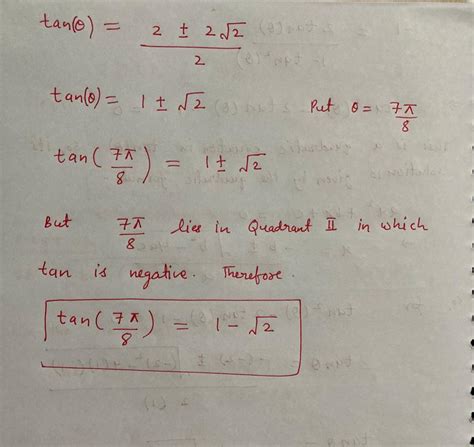 tan(θ) = (2 ± 2√2)/2
tan(θ) = 1 ± √2 Put θ = 7π/8
tan(7π/8) = 1 ± √2
But 7π/8 lies in Quadrant II in which
tan is negative. Therefore.
tan(7π/8) = 1 - √2